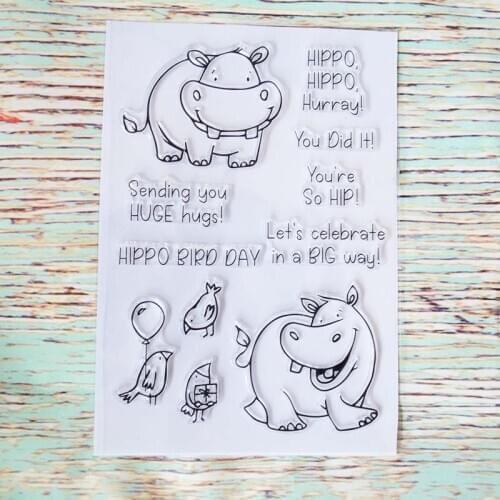 HIPPO,
HIPPO,
Hurray!
You Did It!
You're
So HIP!
Sending you
HUGE hugs!
Let's celebrate
in a BIG way!
HIPPO BIRD DAY